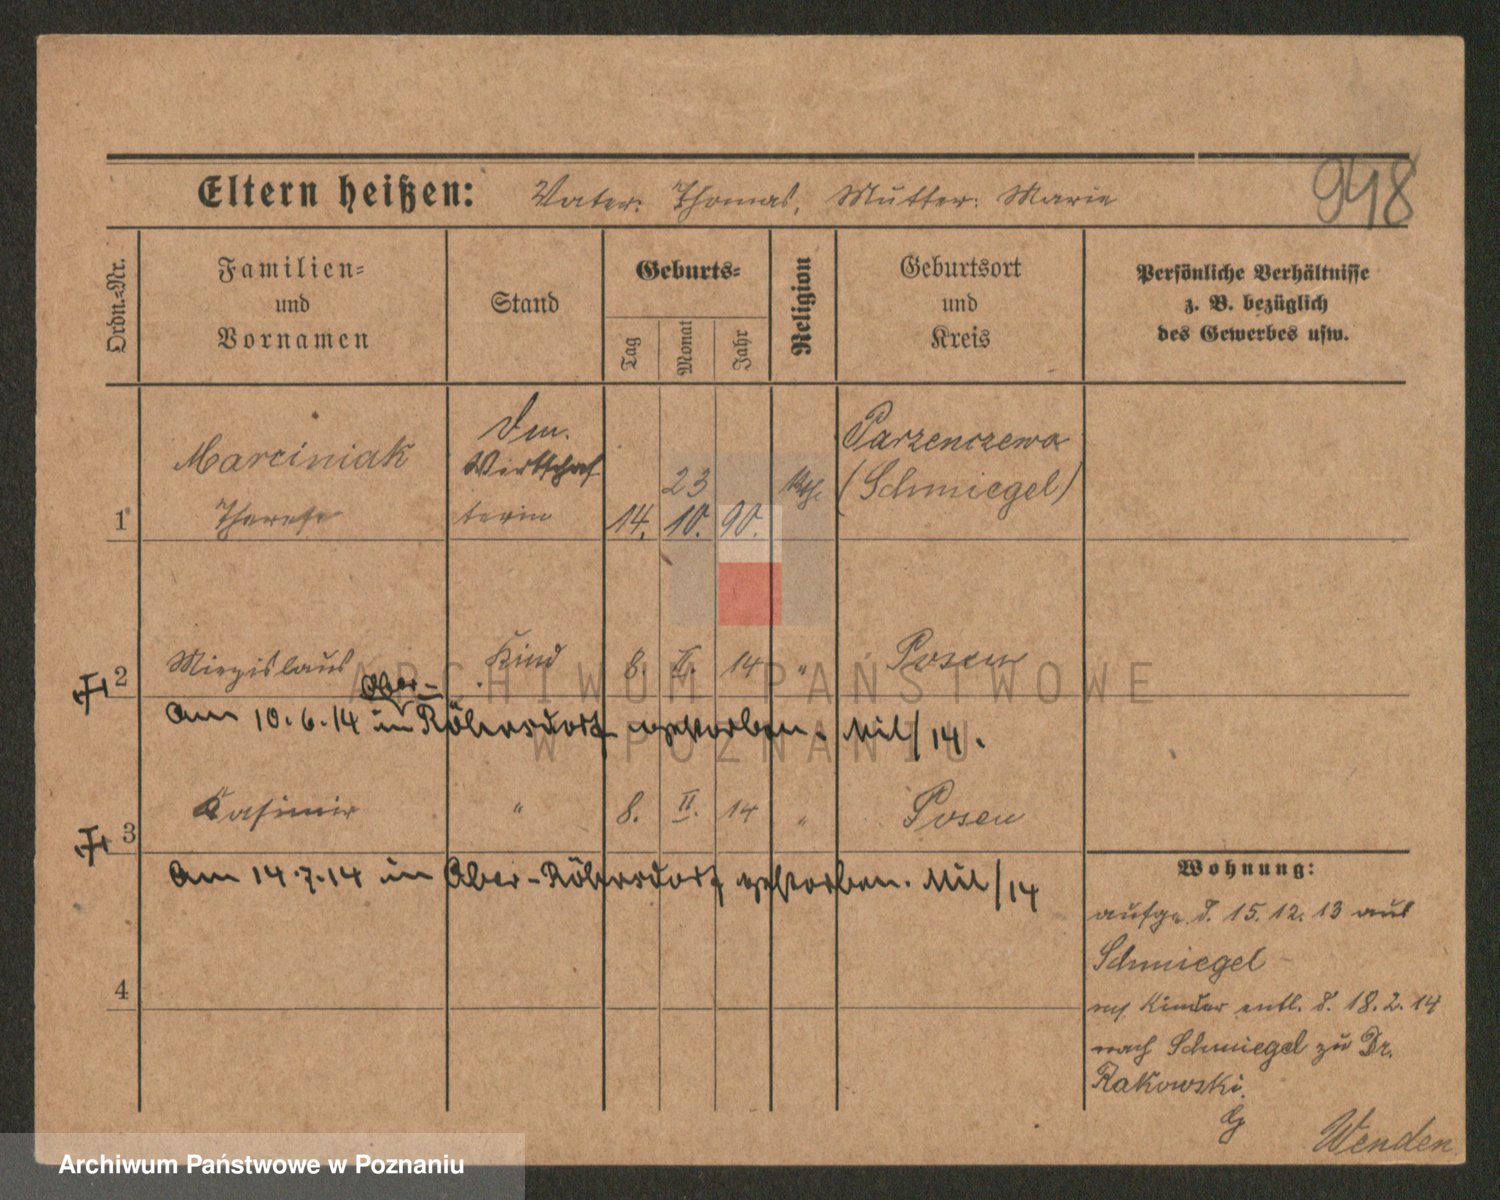 Eltern heißen: Vater: Thomas, Mutter: Marie
948
Ordn.-Nr.
Familien-
und
Vornamen
Stand
Geburts-
Tag
Monat
Jahr
Religion
Geburtsort
und
Kreis
Persönliche Verhältnisse
z. B. bezüglich
des Gewerbes usw.
Marciniak
Therese
Wirtschaf
terin
23
14. 10. 90.
kth.
Parzenczewo
(Schmiegel)
1
2 Miezislaus Kind 8. II. 14 " Posen
Am 10.6.14 in Ober-Röhrsdorf gestorben. Mil/14.
3 Kasimir " 8. II. 14 " Posen
Am 14.7.14 in Ober-Röhrsdorf gestorben. Mil/14
4
Wohnung:
aufge. d. 15.12.13 aus
Schmiegel
Kinder entl. d. 18.2.14
nach Schmiegel zu Dr.
Rakowski.
Wenden
ARCHIWUM PAŃSTWOWE
W POZNANIU
Archiwum Państwowe w Poznaniu